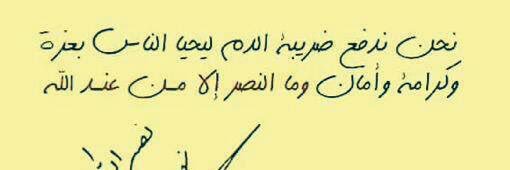 نحن ندفع ضريبة الدم ليحيا الناس بعزة
وكرامة وأمان وما النصر إلا من عند الله